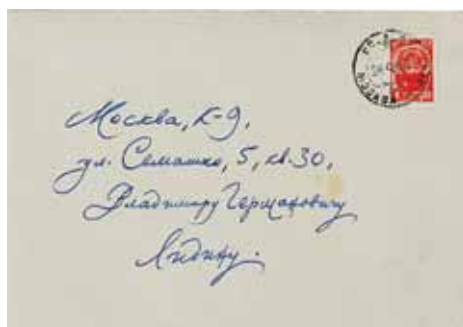 Москва, К-9,
ул. Семашко, 5, кв. 30,
Владимиру Германовичу
Лидину.